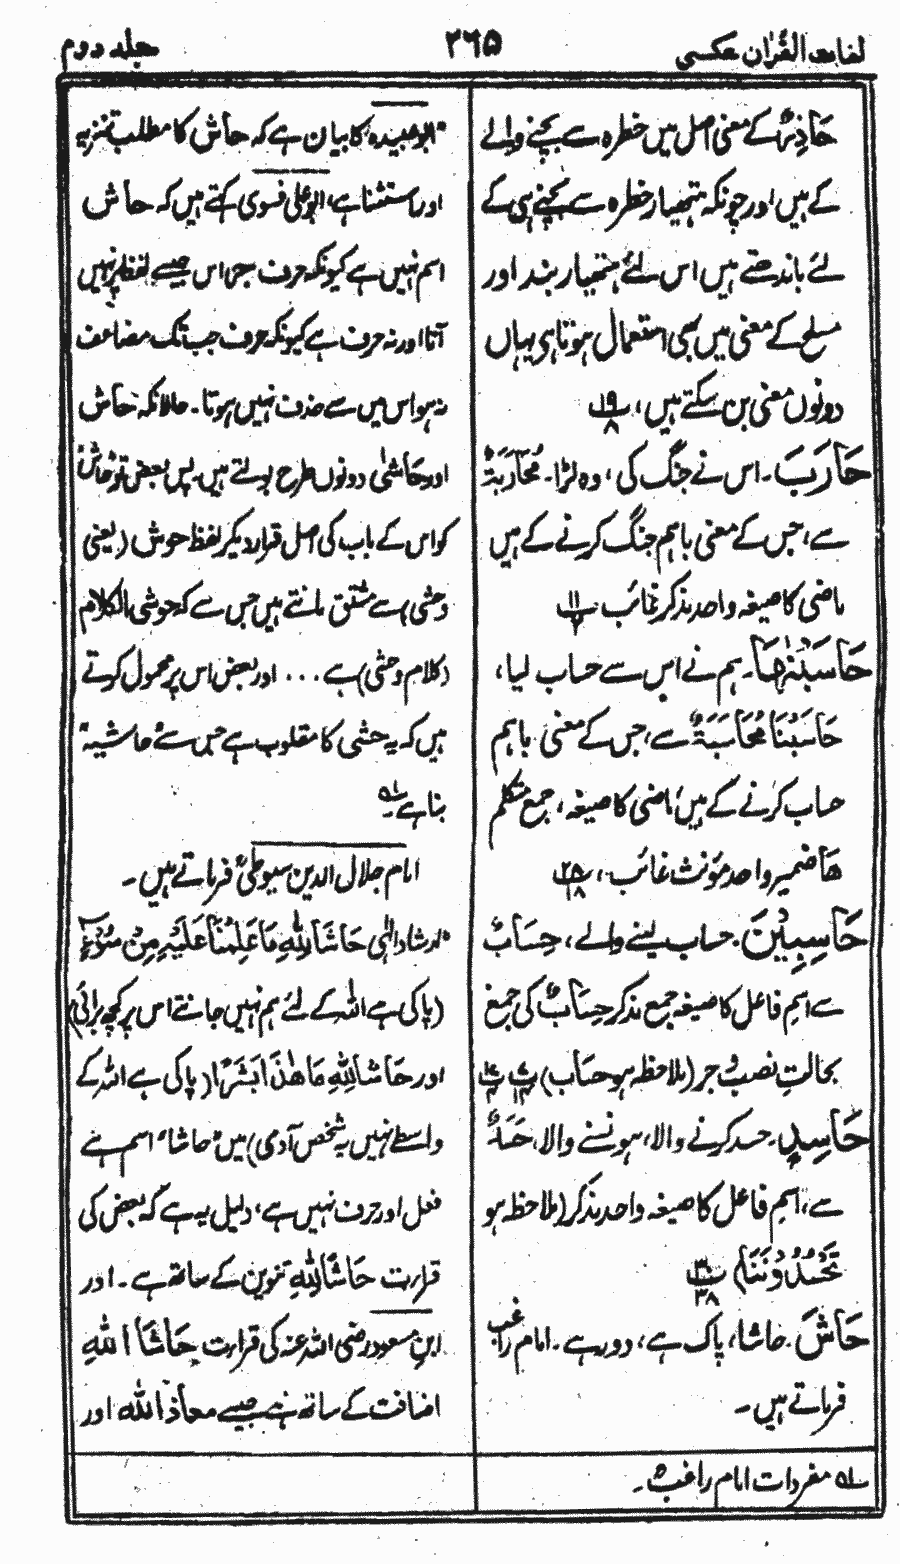 لغات القرآن عکسی
۲۶۵
جلد دوم
حَاذِرٌ کے معنی اصل میں خطرہ سے بچنے والے
کے ہیں اور چونکہ ہتھیار خطرہ سے بچنے ہی کے
لئے باندھتے ہیں اس لئے ہتھیار بند اور
مسلح کے معنی میں بھی استعمال ہوتا ہی یہاں
دونوں معنی بن سکتے ہیں، ۱۹/۸
حَارَبَ۔ اس نے جنگ کی، وہ لڑا۔ مُحَارَبَۃٌ
سے، جس کے معنی باہم جنگ کرنے کے ہیں
ماضی کا صیغہ واحد مذکر غائب ۱۱/۲
حَاسَبْنٰھَا۔ ہم نے اس سے حساب لیا،
حَاسَبْنَا مُحَاسَبَۃٌ سے، جس کے معنی باہم
حساب کرنے کے ہیں، ماضی کا صیغہ، جمع متکلم
ھَا ضمیر واحد مؤنث غائب، ۲۸/۱۸
حَاسِبِیْنَ۔ حساب لینے والے، حِسَابٌ
سے اسم فاعل کا صیغہ جمع مذکر حِسَابٌ کی جمع
بحالتِ نصب و جر (ملاحظہ ہو حسَاب)
حَاسِدٍ۔ حسد کرنے والا، ہونسنے والا، حَسَدٌ
سے، اسم فاعل کا صیغہ واحد مذکر (ملاحظہ ہو
تَحْسُدُوْنَنَا) ۳۰/۳۸
حَاشَ۔ حاشا، پاک ہے، دور ہے۔ امام راغب
فرماتے ہیں۔
"ابو عبیدہ کا بیان ہے کہ حاش کا مطلب تنزیہ
اور استثنا ہے، ابو علی فسوی کہتے ہیں کہ حاش
اسم نہیں ہے کیونکہ حرف جر اس جیسے لفظ پر نہیں
آتا اور نہ حرف ہے کیونکہ حرف جب تک مضاعف
نہ ہو اس میں سے حذف نہیں ہوتا۔ حالانکہ حَاش
اور حَاشیٰ دونوں طرح بولتے ہیں پس بعض تو حَاشَ
کو اس کے باب کی اصل قرار دیکر لفظ حوش (یعنی
وحشی) سے مشتق مانتے ہیں جس سے کہ حوشی الکلام
(کلام وحشی) ہے ... اور بعض اس پر محمول کرتے
ہیں کہ یہ حشی کا مقلوب ہے جس سے حاشیہ"
بنا ہے۔ لہ
امام جلال الدین سیوطی فرماتے ہیں۔
"ارشاد الٰہی حَاشَ لِلہِ مَا عَلِمْنَا عَلَیْہِ مِنْ سُوْٓءٍ
(پاکی ہے اللہ کے لئے ہم نہیں جانتے اس پر کچھ برائی)
اور حَاشَ لِلہِ مَا ھٰذَا بَشَرًا (پاکی ہے اللہ کے
واسطے نہیں یہ شخص آدمی) میں "حاشا" اسم ہے
فعل اور حرف نہیں ہے، دلیل یہ ہے کہ بعض کی
قرارت حَاشًا لِلہِ تنوین کے ساتھ ہے۔ اور
ابن مسعود رضی اللہ عنہ کی قرارت حَاشَا اللہِ
اضافت کے ساتھ ہے جیسے معاذَ اللہ اور
لہ مفردات امام راغب۔